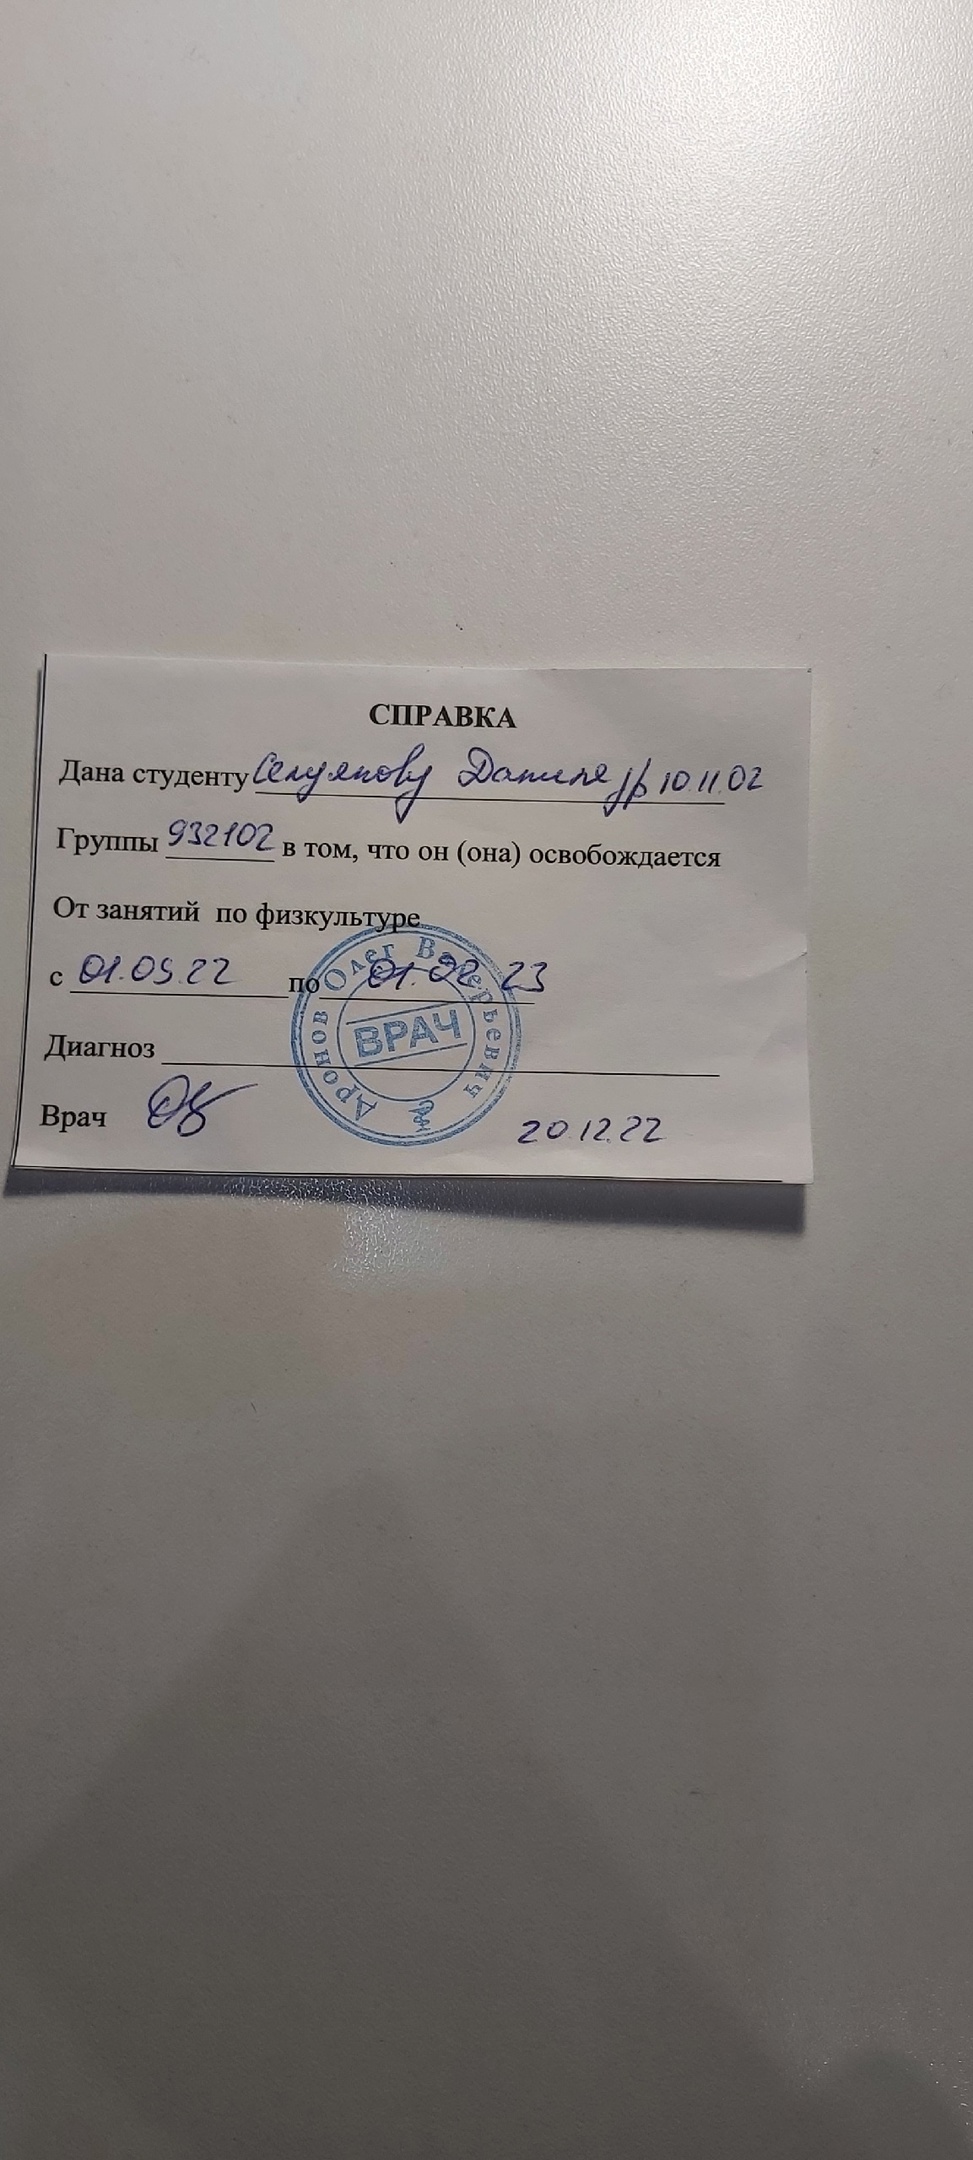 СПРАВКА
Дана студенту Селуянову Даниле г/р 10.11.02
Группы 932102 в том, что он (она) освобождается
От занятий по физкультуре
с 01.09.22 по 01.02.23
Диагноз
Врач
20.12.22
Дронов Олег Валерьевич
ВРАЧ